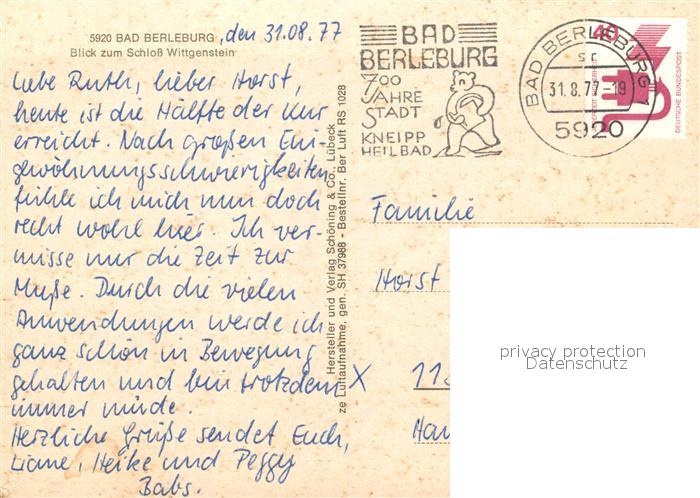 5920 BAD BERLEBURG, den 31.08.77
Blick zum Schloß Wittgenstein
Liebe Ruth, lieber Horst,
heute ist die Hälfte der Kur
erreicht. Nach großen Ein-
gewöhnungsschwierigkeiten
fühle ich mich nun doch
recht wohl hier. Ich ver-
misse nur die Zeit zur
Muße. Durch die vielen
Anwendungen werde ich
ganz schön in Bewegung
gehalten und bin trotzdem
immer müde.
Herzliche Grüße sendet Euch,
Liane, Heike und Peggy
Babs.
Hersteller und Verlag Schöning & Co., Lübeck
ze Luftaufnahme, gen. SH 37988 - Bestellnr. Ber Luft RS 1028
BAD
BERLEBURG
700
JAHRE
STADT
KNEIPP
HEILBAD
BAD BERLEBURG
sc
31.8.77-19
5920
40
DEUTSCHE BUNDESPOST
Familie
Horst
X 11
Han
privacy protection
Datenschutz